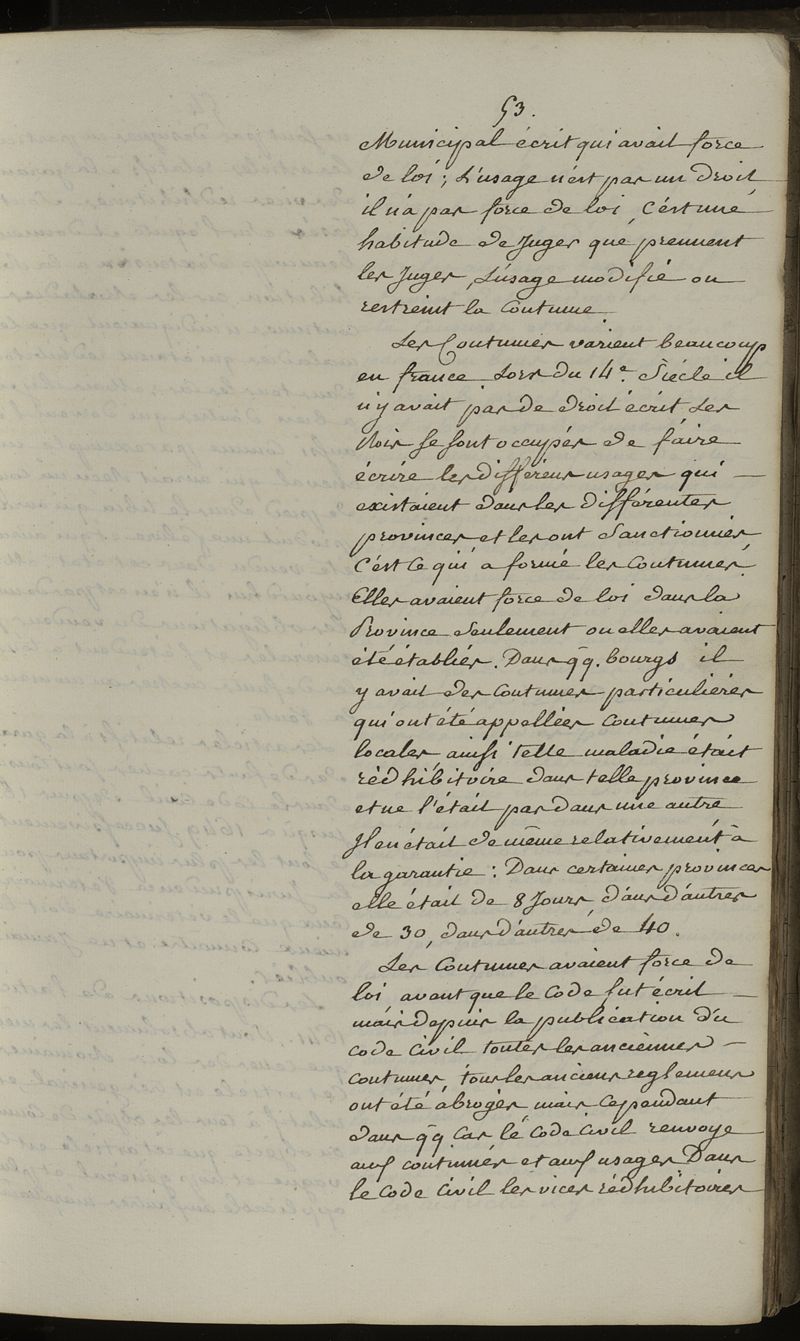 53.
Municipal écrit qui avait force
de loi; L'usage n'est pas un droit
il n'a pas force de loi, C'est une
habitude de Juger que prennent
les Juges, L'usage modifie ou
restreint la Coutume.
Les Coutumes varient beaucoup
en france Lors du 14e. Siécle il
n'y avait pas de droit écrit Les
Rois se sont occupés de faire
écrire les différens usages qui —
existaient dans les différentes
provinces et les ont Sanctionnés
C'est ce qui a formé les Coutumes.
Elles avaient force de loi dans la
Province Seulement ou elles avaient
été établies. Dans qq. bourgs il
y avait des Coutumes particulières
qui ont été appellées Coutumes
locales, ainsi telle maladie était
rédhibitoire dans telle province
et ne l'était pas dans une autre
Il en était de même relativement à
la garantie: Dans certaines provinces
elle était de 8 Jours, dans d'autres
de 30, dans d'autres de 40.
Les Coutumes avaient force de
loi avant que le Code fut écrit —
mais depuis la publication du
code Civil toutes les anciennes —
coutumes, tous les anciens reglemens
ont été abrogés mais Cependant
dans qq Cas le Code Civil renvoye
aux coutumes et aux usages Dans
le Code Civil les vices rédhibitoires